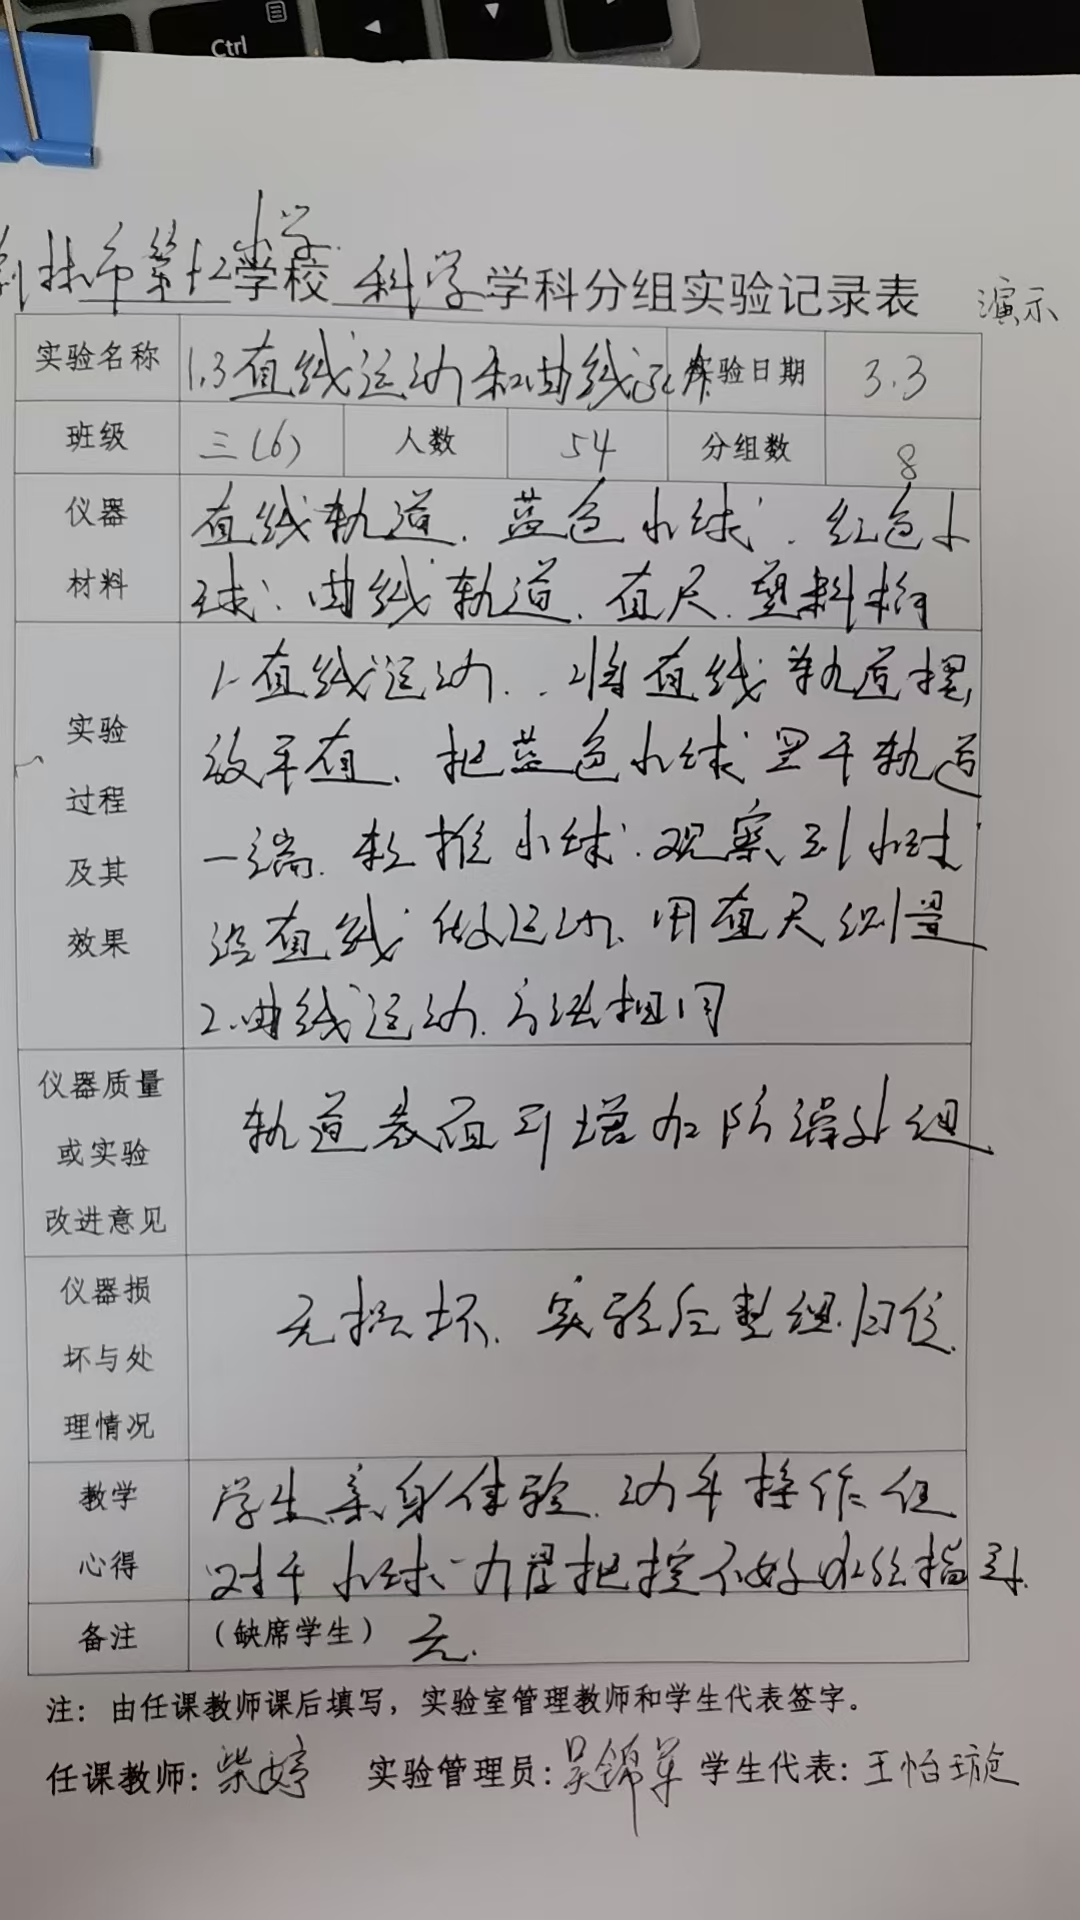 Ctrl
林市第12小学学校 科学 学科分组实验记录表 演示
实验名称 1.3直线运动和曲线运动 实验日期 3.3
班级 三(6) 人数 54 分组数 8
仪器 直线轨道、蓝色小球、红色小
材料 球、曲线轨道、直尺、塑料
1.直线运动、将直线轨道摆
实验 放平直、把蓝色小球置于轨道
过程 一端、轻推小球、观察到小球
及其 沿直线做运动、用直尺测量
效果 2.曲线运动、方法相同
仪器质量 轨道表面可增加防
或实验
改进意见
仪器损 无损坏、实验后整组归位.
坏与处
理情况
教学 学生亲身体验、动手操作 但
心得 对于小球力度把控不好 指导.
备注 （缺席学生） 无.
注：由任课教师课后填写，实验室管理教师和学生代表签字。
任课教师: 柴婷 实验管理员: 吴锦 学生代表: 王怡璇